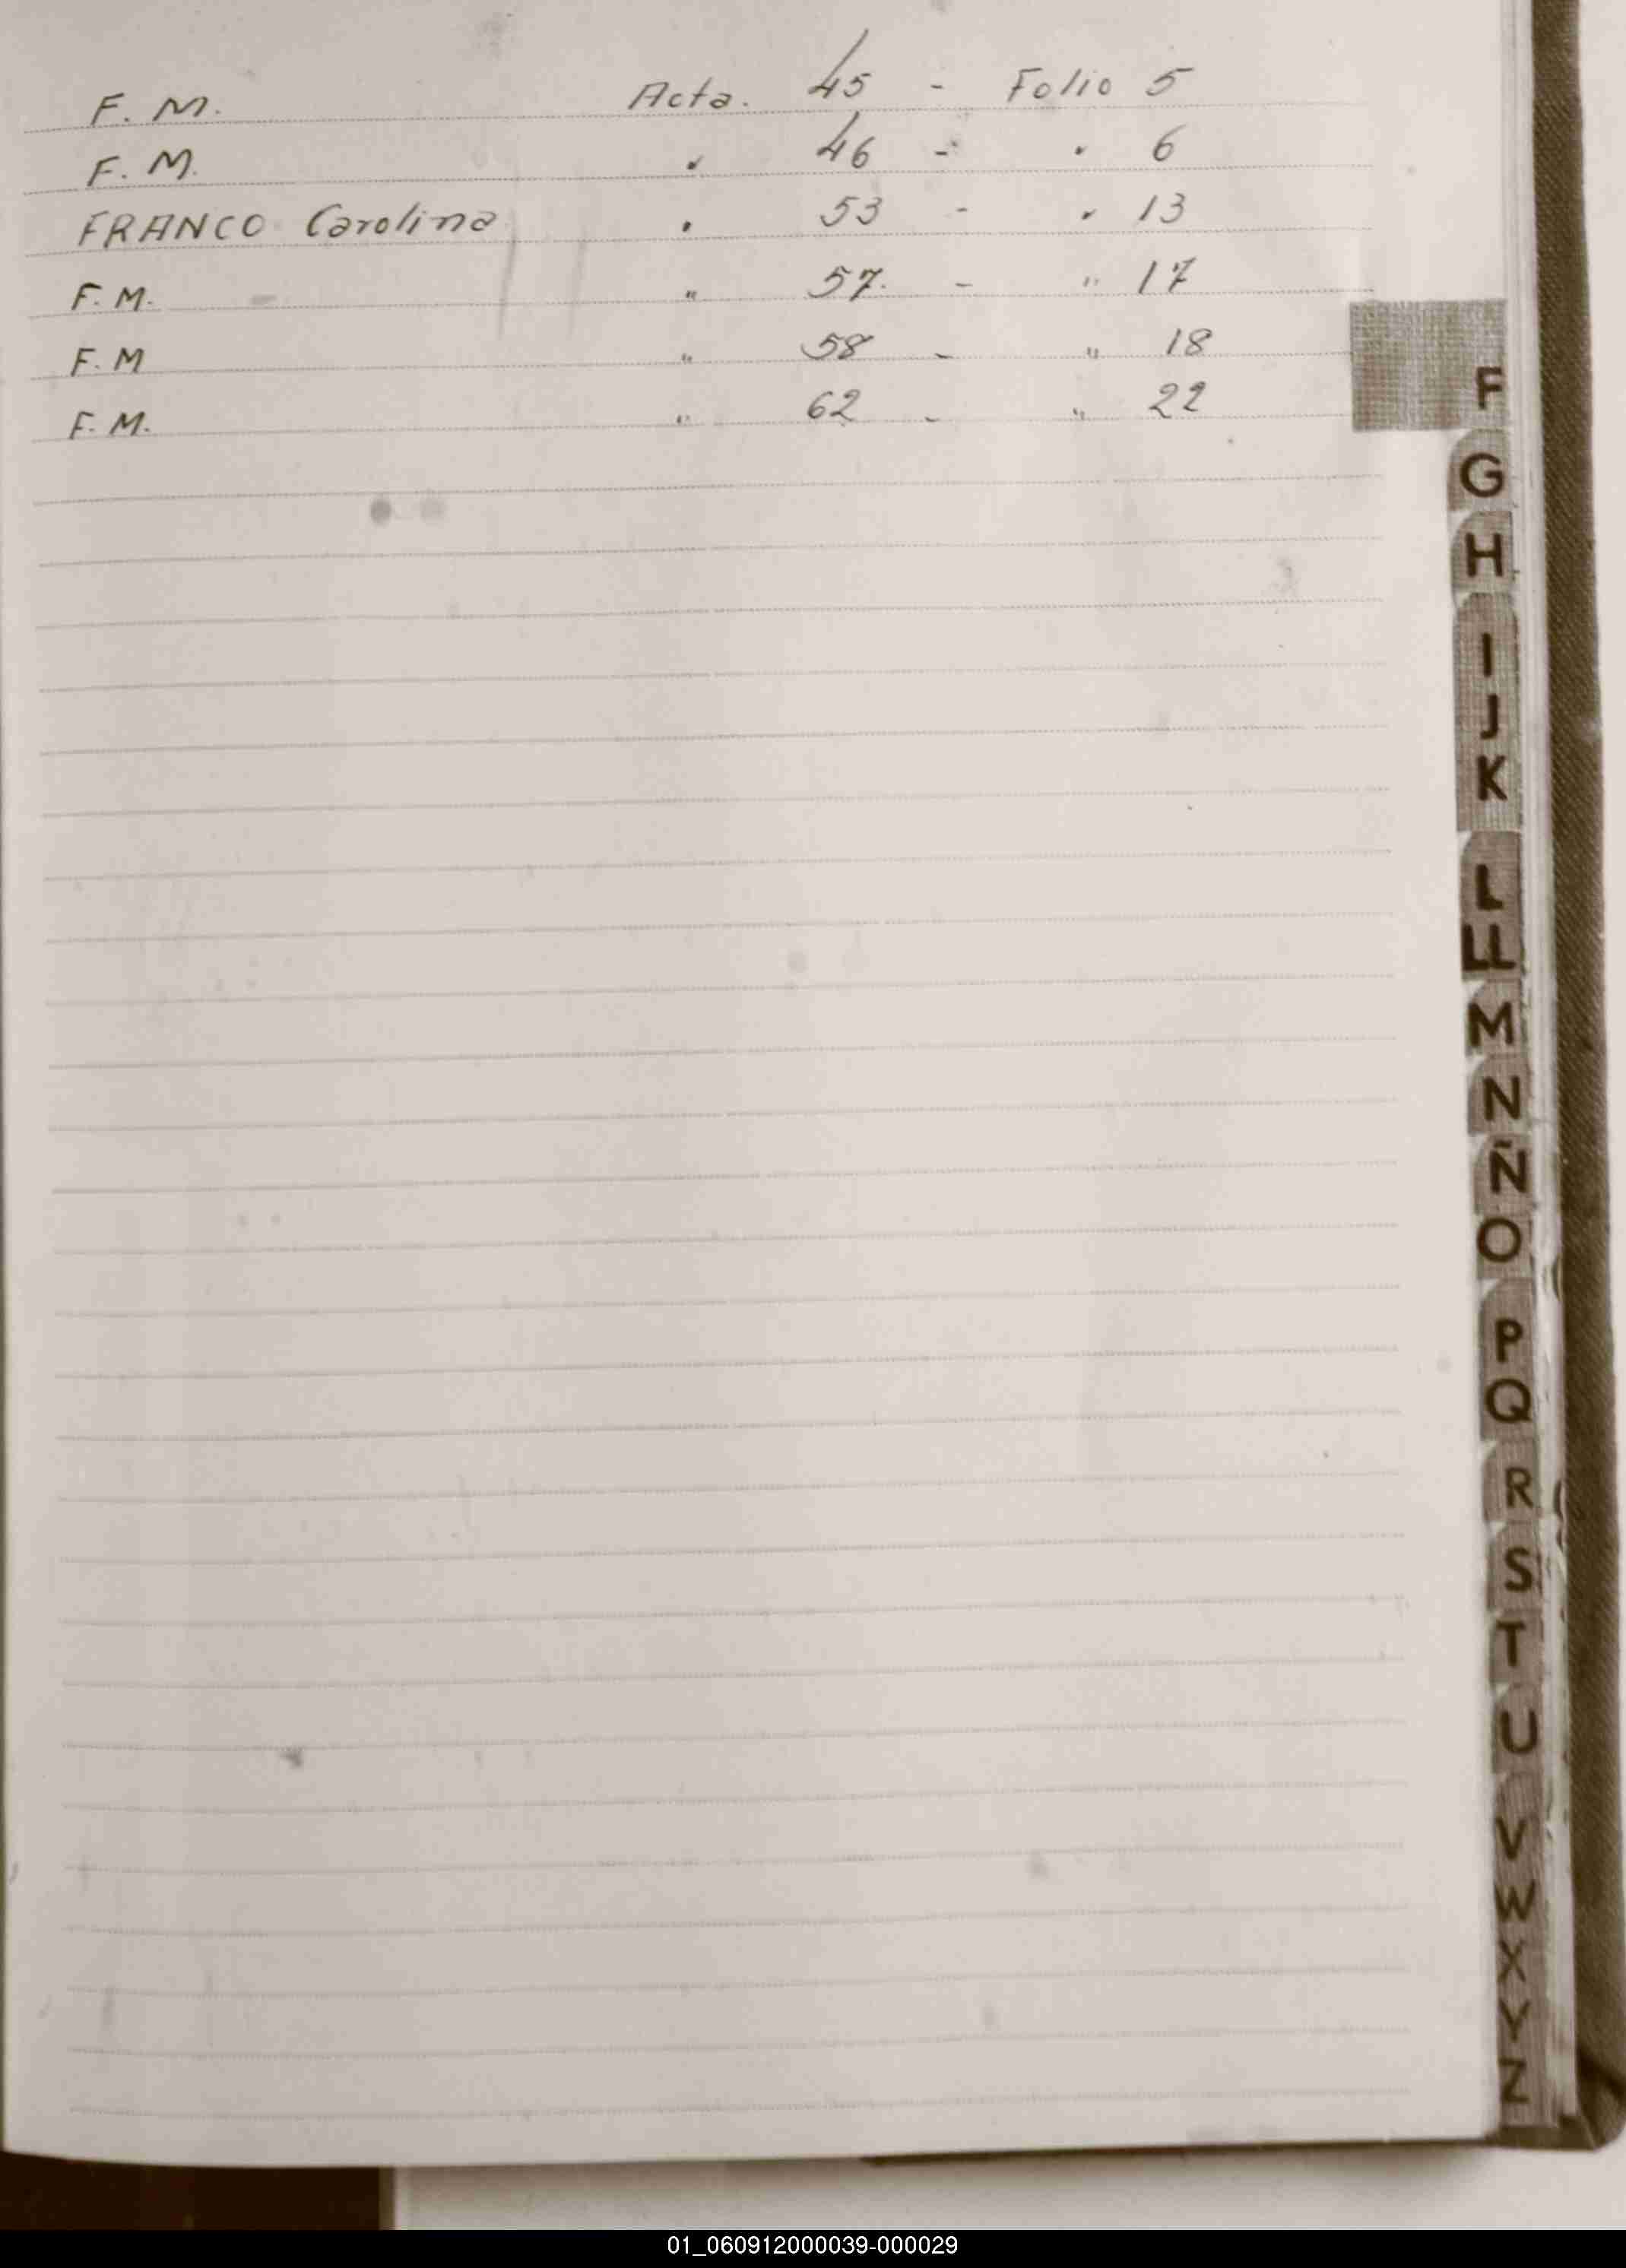 F. M. Acta. 45 - Folio 5
F. M. " 46 - " 6
FRANCO Carolina " 53 - " 13
F. M. " 57. - " 17
F. M " 58 - " 18
F. M. " 62 - " 22
F
G
H
I
J
K
L
LL
M
N
Ñ
O
P
Q
R
S
T
U
V
W
X
Y
Z
01_060912000039-000029